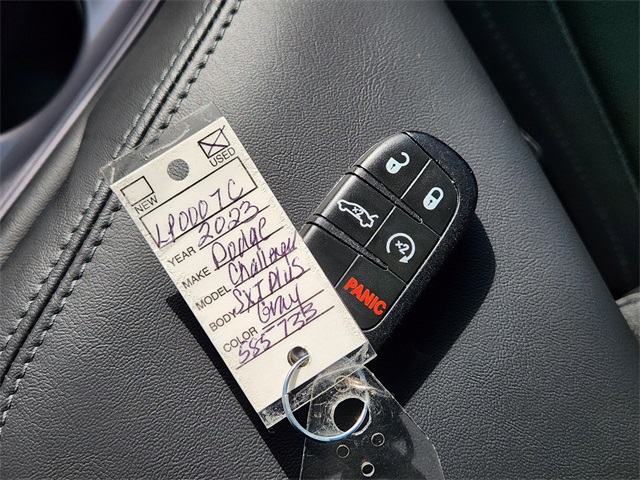 NEW
USED
LP000TC
YEAR 2023
MAKE Dodge
MODEL Challenger
BODY SXT PLUS
COLOR Gray
585733
x2
x2
PANIC